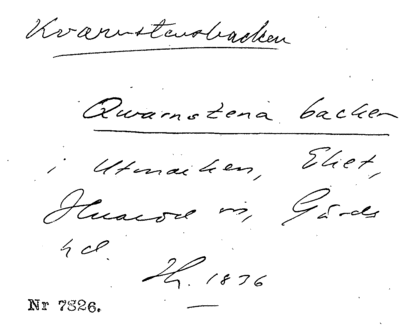 Kvarnstensbacken
Qwarnstena backen
i Utmarken, Eket,
Huaröd sn, Gärds
hd.
Hy. 1836
Nr 7326.